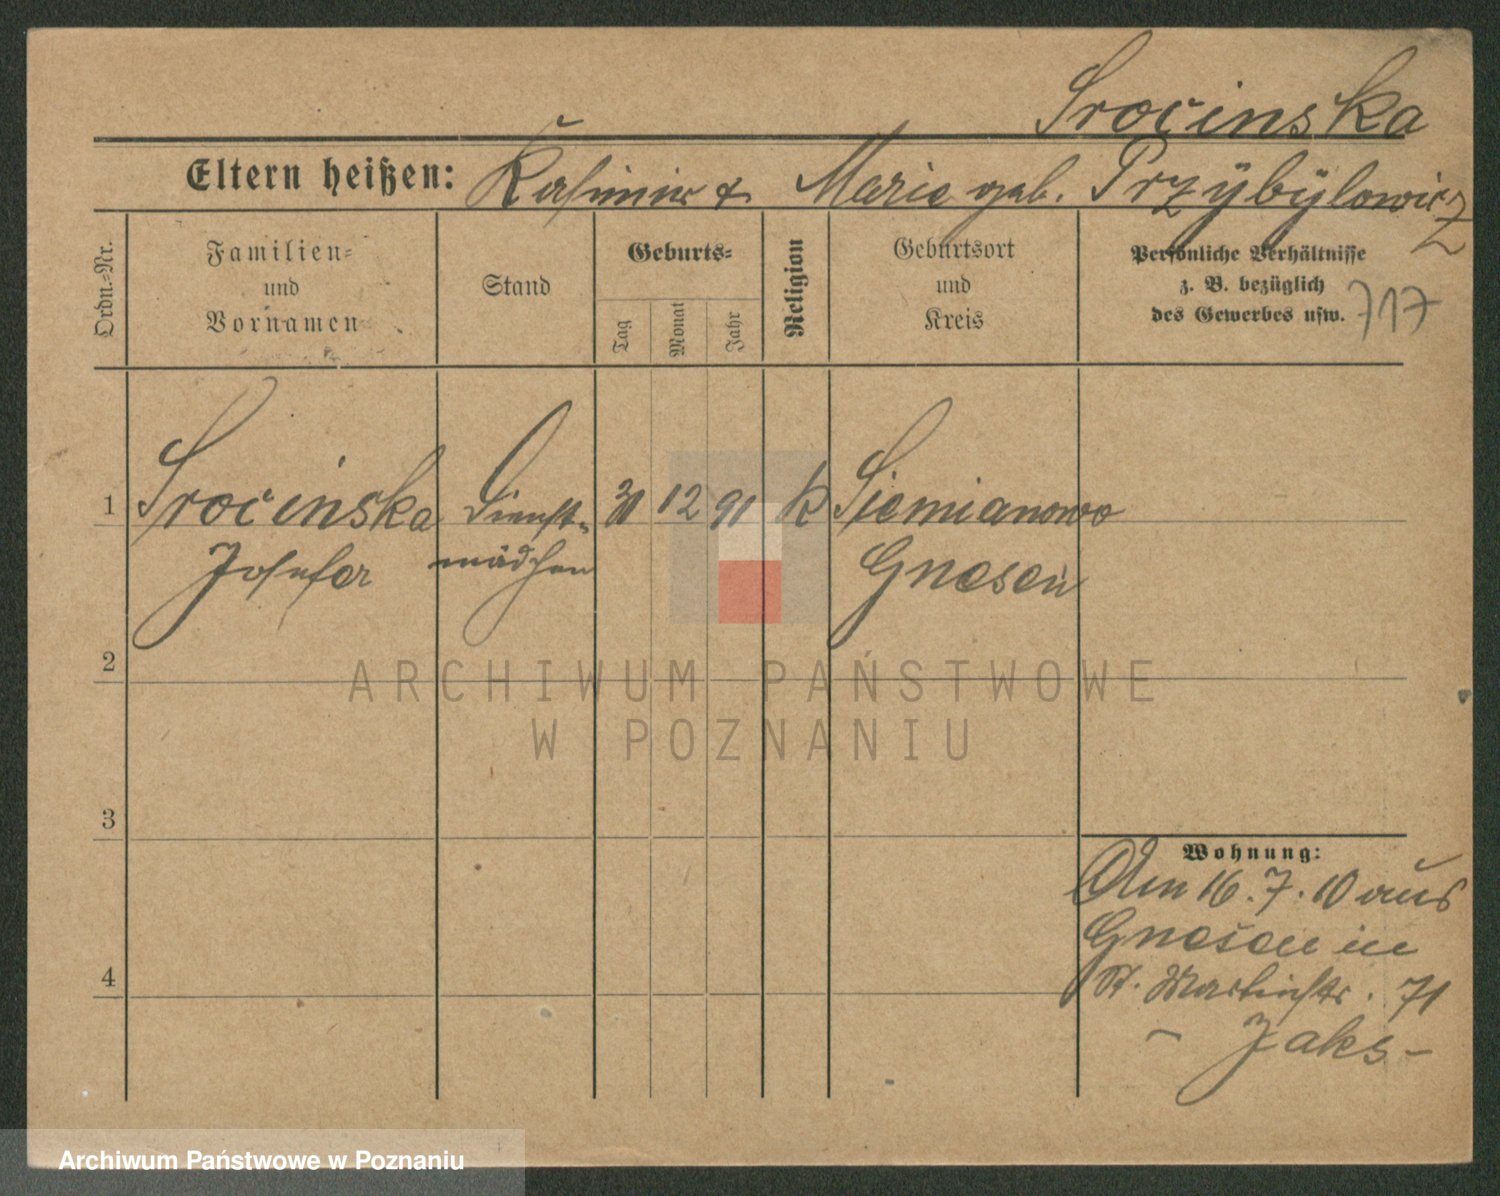 Srocinska
Eltern heißen: Kasimir & Marie geb. Przybylowicz
Ordn.-Nr.
Familien-
und
Vornamen
Stand
Geburts-
Tag
Monat
Jahr
Religion
Geburtsort
und
Kreis
Persönliche Verhältnisse
z. B. bezüglich
des Gewerbes usw.
717
1 Srocinska Dienst- 31 12 91 k Siemianowo
Josefa mädchen Gnesen
2
3
4
Wohnung:
Am 16.7.10 aus
Gnesen in
St. Martinstr. 71
- Jaks -
ARCHIWUM PAŃSTWOWE
W POZNANIU
Archiwum Państwowe w Poznaniu